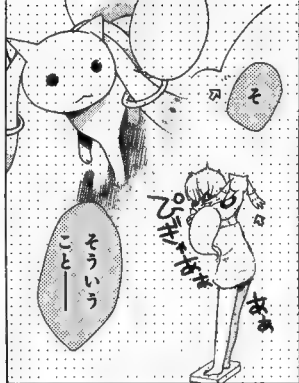 そ
そういう
こと──
ぴぎゃあああ
ああ